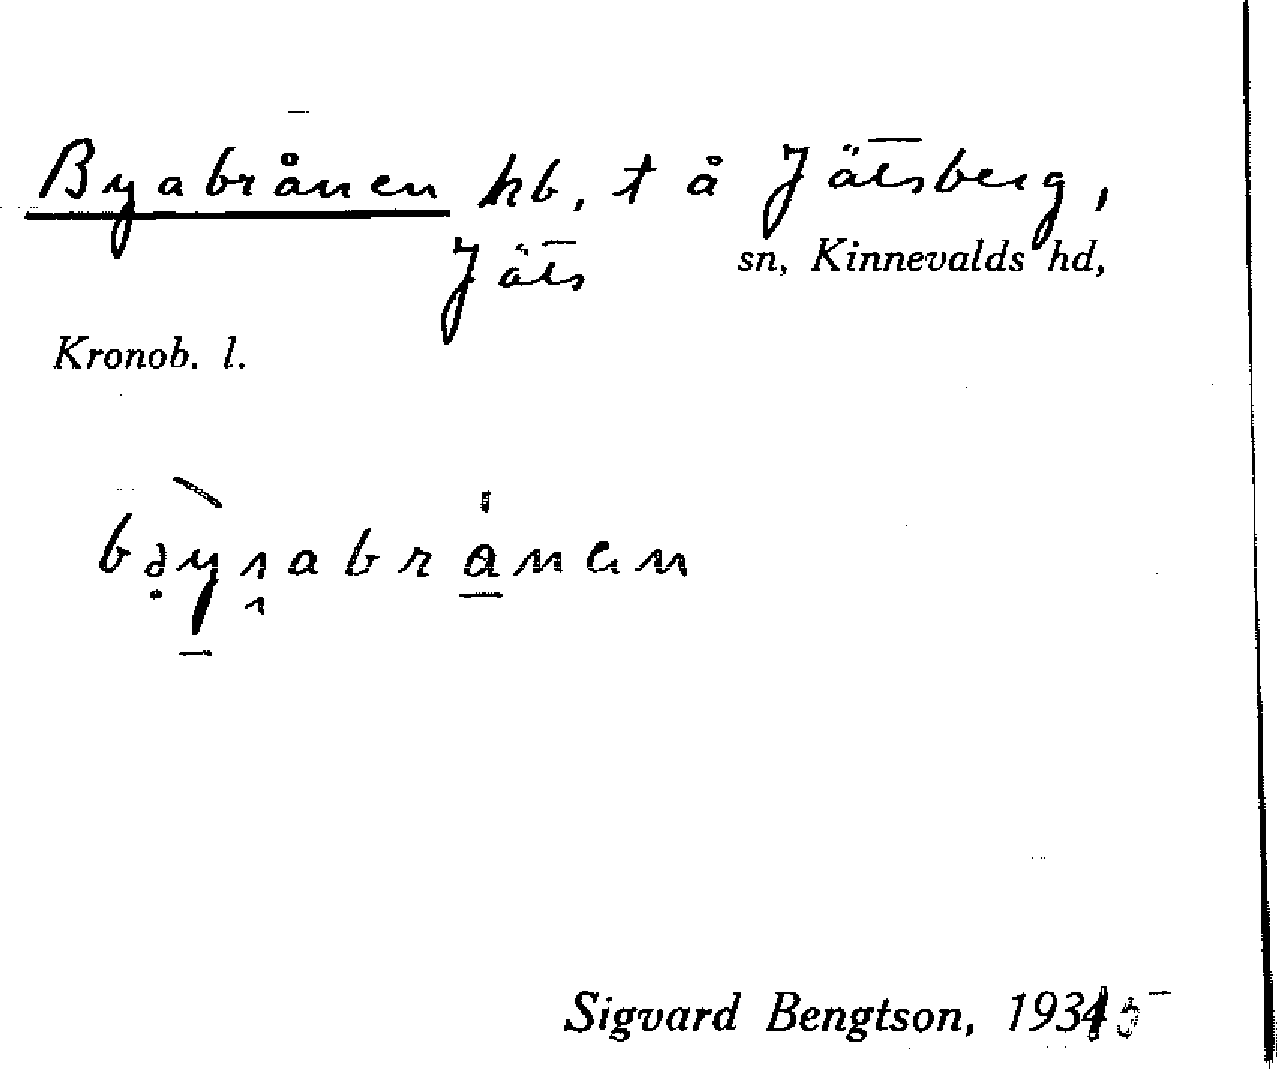 Byabrånen hb, t å Jätsberg,
Jäts sn, Kinnevalds hd,
Kronob. l.
Sigvard Bengtson, 1935